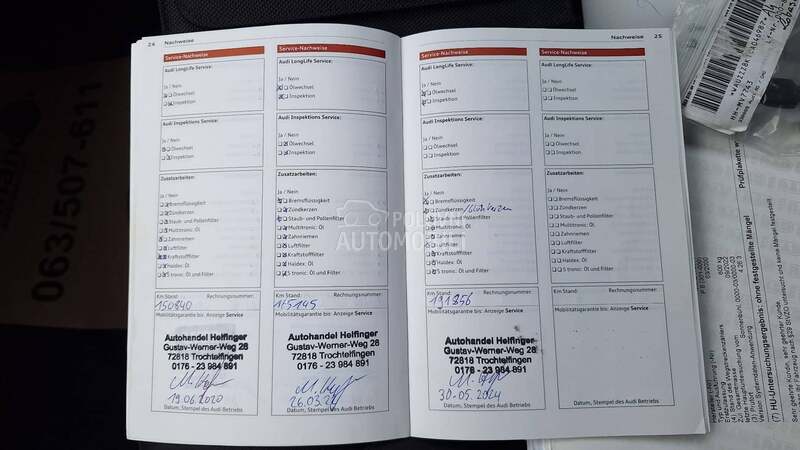 24 Nachweise
Service-Nachweise
Audi LongLife Service:
Ja / Nein
Ölwechsel
Inspektion
Audi Inspektions Service:
Ja / Nein
Ölwechsel
Inspektion
Zusatzarbeiten:
Ja / Nein
Bremsflüssigkeit
Zündkerzen
Staub- und Pollenfilter
Multitronic: Öl
Zahnriemen
Luftfilter
Kraftstofffilter
Haldex: Öl
S tronic: Öl und Filter
Km Stand: Rechnungsnummer:
150840
Mobilitätsgarantie bis: Anzeige Service
Autohandel Helfinger
Gustav-Werner-Weg 28
72818 Trochtelfingen
0176 - 23 984 891
19.06.2020
Datum, Stempel des Audi Betriebs
Service-Nachweise
Audi LongLife Service:
Ja / Nein
Ölwechsel
Inspektion
Audi Inspektions Service:
Ja / Nein
Ölwechsel
Inspektion
Zusatzarbeiten:
Ja / Nein
Bremsflüssigkeit
Zündkerzen
Staub- und Pollenfilter
Multitronic: Öl
Zahnriemen
Luftfilter
Kraftstofffilter
Haldex: Öl
S tronic: Öl und Filter
Km Stand: Rechnungsnummer:
175145
Mobilitätsgarantie bis: Anzeige Service
Autohandel Helfinger
Gustav-Werner-Weg 28
72818 Trochtelfingen
0176 - 23 984 891
Datum, Stempel des Audi Betriebs
Nachweise 25
Service-Nachweise
Audi LongLife Service:
Ja / Nein
Ölwechsel
Inspektion
Audi Inspektions Service:
Ja / Nein
Ölwechsel
Inspektion
Zusatzarbeiten:
Ja / Nein
Bremsflüssigkeit
Zündkerzen /Glühkerzen
Staub- und Pollenfilter
Multitronic: Öl
Zahnriemen
Luftfilter
Kraftstofffilter
Haldex: Öl
S tronic: Öl und Filter
Km Stand: Rechnungsnummer:
191856
Mobilitätsgarantie bis: Anzeige Service
Autohandel Helfinger
Gustav-Werner-Weg 28
72818 Trochtelfingen
0176 - 23 984 891
30.05.2024
Datum, Stempel des Audi Betriebs
Service-Nachweise
Audi LongLife Service:
Ja / Nein
Ölwechsel
Inspektion
Audi Inspektions Service:
Ja / Nein
Ölwechsel
Inspektion
Zusatzarbeiten:
Ja / Nein
Bremsflüssigkeit
Zündkerzen
Staub- und Pollenfilter
Multitronic: Öl
Zahnriemen
Luftfilter
Kraftstofffilter
Haldex: Öl
S tronic: Öl und Filter
Km Stand: Rechnungsnummer:
Mobilitätsgarantie bis: Anzeige Service
Datum, Stempel des Audi Betriebs
063/507-611
(7) HU-Untersuchungsergebnis: ohne festgestellte Mängel